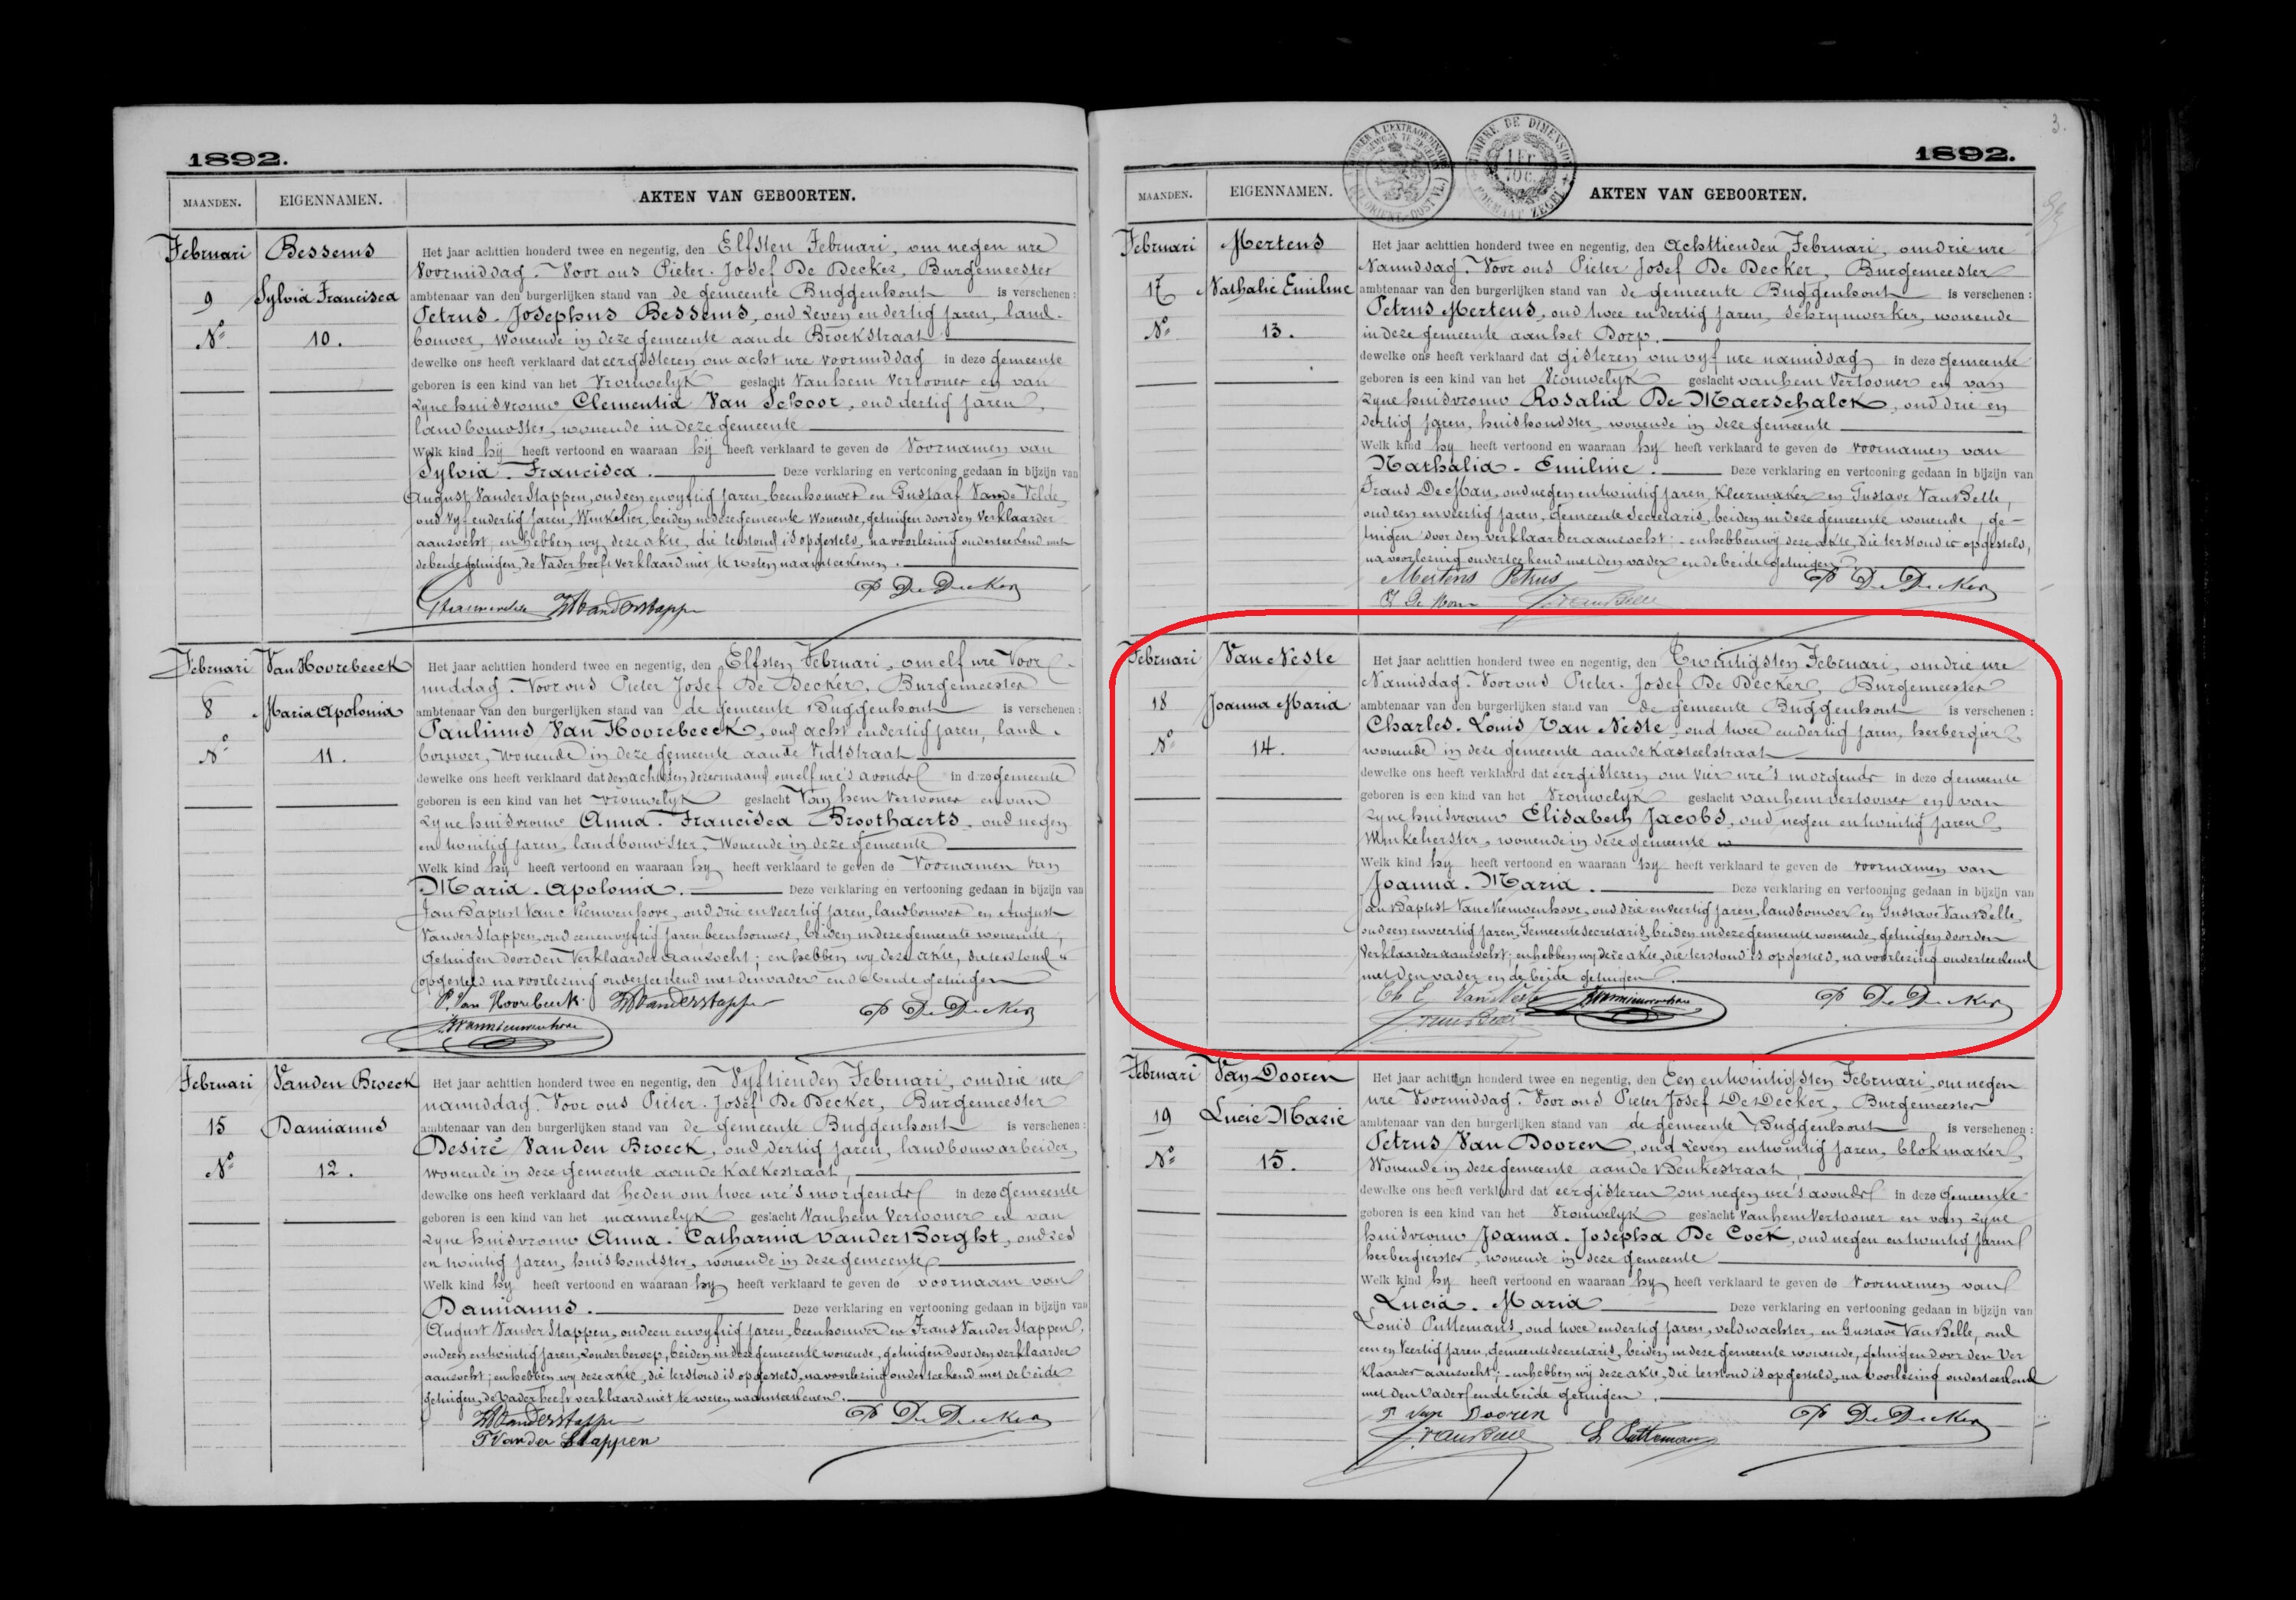 1892.
MAANDEN.
EIGENNAMEN.
AKTEN VAN GEBOORTEN.
Februari
Bessems
9
Sylvia Francisca
No
10.
Het jaar achttien honderd twee en negentig, den Elfsten Februari, om negen ure
Voormiddag. Voor ons Pieter-Josef De Decker, Burgemeester
ambtenaar van den burgerlijken stand van de gemeente Buggenhout is verschenen:
Petrus-Josephus Bessems, oud zeven en dertig jaren, land-
bouwer, wonende in deze gemeente aan de Broekstraat
dewelke ons heeft verklaard dat eergisteren om acht ure voormiddag in deze gemeente
geboren is een kind van het vrouwelyk geslacht van hem vertooner en van
zyne huisvrouw Clementia Van Schoor, oud dertig jaren,
landbouwster, wonende in deze gemeente
Welk kind hij heeft vertoond en waaraan hij heeft verklaard te geven de voornamen van
Sylvia-Francisca. Deze verklaring en vertooning gedaan in bijzijn van
August Vander Stappen, oud een en vyftig jaren, beenhouwer en Gustaaf Van de Velde,
oud vyf en dertig jaren, Winkelier, beiden in deze gemeente wonende, getuigen door den verklaarder
aanzocht; en hebben wy deze akte, die terstond is opgesteld, na voorlezing onderteekend met
de beide getuigen, de Vader heeft verklaard niet te weten naamteekenen.
P De Decker
Vanderstappen
Februari
Van Hoorebeeck
8
Maria Apolonia
No
11.
Het jaar achttien honderd twee en negentig, den Elfsten Februari, om elf ure Voor-
middag. Voor ons Pieter Josef De Decker, Burgemeester
ambtenaar van den burgerlijken stand van de gemeente Buggenhout is verschenen:
Paulinus Van Hoorebeeck, oud acht en dertig jaren, land-
bouwer, wonende in deze gemeente aan de Vidtstraat
dewelke ons heeft verklaard dat den achtsten dezer maand om elf ure 's avonds in deze gemeente
geboren is een kind van het vrouwelyk geslacht Van hem vertooner en van
zyne huisvrouw Anna-Francisca Broothaerts, oud negen
en twintig jaren, landbouwster, Wonende in deze gemeente
Welk kind hy heeft vertoond en waaraan hy heeft verklaard te geven de Voornamen van
Maria-Apolonia. Deze verklaring en vertooning gedaan in bijzijn van
Jan Baptist Van Nieuwenhove, oud drie en veertig jaren, landbouwer en August
Vander Stappen, oud een en vyftig jaren, beenhouwer, beiden in deze gemeente wonende,
getuigen door den Verklaarder aanzocht; en hebben wy deze akte, die terstond is
opgesteld na voorlezing onderteekend met den vader en de beide getuigen
P. Van Hoorebeeck Vanderstappen P De Decker
Vannieuwenhove
Februari
Vanden Broeck
15
Damianus
No
12.
Het jaar achttien honderd twee en negentig, den Vyftienden Februari, om drie ure
namiddag. Voor ons Pieter-Josef De Decker, Burgemeester
ambtenaar van den burgerlijken stand van de gemeente Buggenhout is verschenen:
Desiré Vanden Broeck, oud dertig jaren, landbouwarbeider,
wonende in deze gemeente aan de Kalkestraat,
dewelke ons heeft verklaard dat heden om twee ure 's morgends in deze gemeente
geboren is een kind van het mannelyk geslacht Van hem Vertooner en van
zyne huisvrouw Anna-Catharina Vander Borght, oud zes
en twintig jaren, huishoudster, wonende in deze gemeente
Welk kind hy heeft vertoond en waaraan hy heeft verklaard te geven de voornaam van
Damianus. Deze verklaring en vertooning gedaan in bijzijn van
August Vander Stappen, oud een en vyftig jaren, beenhouwer en Frans Vander Stappen,
oud een en twintig jaren, zonder beroep, beiden in deze gemeente wonende, getuigen door den verklaarder
aanzocht; en hebben wy deze akte, die terstond is opgesteld, na voorlezing onderteekend met de beide
getuigen, de Vader heeft verklaard niet te weten naamteekenen.
Vanderstappen P De Decker
F Vander Stappen
3.
1892.
MAANDEN.
EIGENNAMEN.
AKTEN VAN GEBOORTEN.
TIMBRE DE DIMENSION
FORMAAT ZEGEL
Februari
Mertens
17
Nathalie Emiline
No
13.
Het jaar achttien honderd twee en negentig, den Achttienden Februari, om drie ure
Namiddag. Voor ons Pieter Josef De Decker, Burgemeester
ambtenaar van den burgerlijken stand van de gemeente Buggenhout is verschenen:
Petrus Mertens, oud twee en dertig jaren, schrynwerker, wonende
in deze gemeente aan het Dorp.
dewelke ons heeft verklaard dat gisteren om vyf ure namiddag in deze gemeente
geboren is een kind van het Vrouwelyk geslacht van hem Vertooner en van
zyne huisvrouw Rosalia De Maerschalck, oud drie en
dertig jaren, huishoudster, wonende in deze gemeente
Welk kind hy heeft vertoond en waaraan hy heeft verklaard te geven de voornamen van
Nathalia-Emiline. Deze verklaring en vertooning gedaan in bijzijn van
Frans De Man, oud negen en twintig jaren, Kleermaker en Gustave Van Belle,
oud een en veertig jaren, gemeente secretaris, beiden in deze gemeente wonende, ge-
tuigen door den verklaarder aanzocht; en hebben wij deze akte, die terstond is opgesteld,
na voorlezing onderteekend met den vader en de beide getuigen
Mertens Petrus P De Decker
F De Man G. Van Belle
Februari
Van Neste
18
Joanna Maria
No
14.
Het jaar achttien honderd twee en negentig, den Twintigsten Februari, om drie ure
Namiddag. Voor ons Pieter-Josef De Decker, Burgemeester
ambtenaar van den burgerlijken stand van de gemeente Buggenhout is verschenen:
Charles-Louis Van Neste, oud twee en dertig jaren, herbergier
wonende in deze gemeente aan de Kasteelstraat
dewelke ons heeft verklaard dat eergisteren om vier ure 's morgends in deze gemeente
geboren is een kind van het Vrouwelyk geslacht van hem vertooner en van
zyne huisvrouw Elisabeth Jacobs, oud negen en twintig jaren,
Winkelierster, wonende in deze gemeente
Welk kind hy heeft vertoond en waaraan hy heeft verklaard te geven de voornamen van
Joanna-Maria. Deze verklaring en vertooning gedaan in bijzijn van
Jan Baptist Van Nieuwenhove, oud drie en veertig jaren, landbouwer en Gustave Van Belle,
oud een en veertig jaren, Gemeente secretaris, beiden in deze gemeente wonende, getuigen door den
Verklaarder aanzocht; en hebben wy deze akte, die terstond is opgesteld, na voorlezing onderteekend
met den vader en de beide getuigen.
Ch L Van Neste Vannieuwenhove P De Decker
G. Van Belle
Februari
Van Dooren
19
Lucie Marie
No
15.
Het jaar achttien honderd twee en negentig, den Een en twintigsten Februari, om negen
ure Voormiddag. Voor ons Pieter Josef De Decker, Burgemeester
ambtenaar van den burgerlijken stand van de gemeente Buggenhout is verschenen:
Petrus Van Dooren, oud zeven en twintig jaren, blokmaker,
Wonende in deze gemeente aan de Benkestraat,
dewelke ons heeft verklaard dat eergisteren om negen ure 's avonds in deze Gemeente
geboren is een kind van het Vrouwelyk geslacht van hem Vertooner en van zyne
huisvrouw Joanna-Josepha De Cock, oud negen en twintig jaren
herbergierster, wonende in deze gemeente
Welk kind hy heeft vertoond en waaraan hy heeft verklaard te geven de Voornamen van
Lucia-Maria Deze verklaring en vertooning gedaan in bijzijn van
Louis Puttemans, oud twee en dertig jaren, veldwachter, en Gustave Van Belle, oud
een en Veertig jaren, gemeente secretaris, beiden in deze gemeente wonende, getuigen door den Ver
klaarder aanzocht; en hebben wij deze akte, die terstond is opgesteld, na voorlezing onderteekend
met den Vader en de beide getuigen.
P Van Dooren P De Decker
G. Van Belle L Puttemans